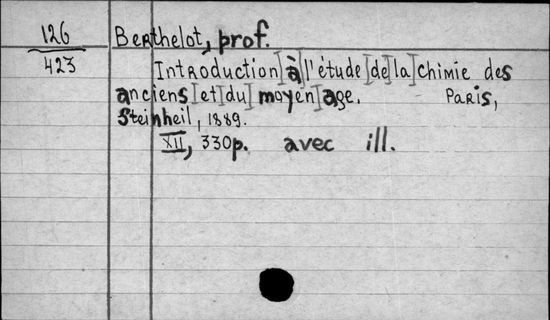 126
423
Berthelot, prof.
Introduction] à] l'étude] de] la] chimie des
anciens] et] du] moyen] age. Paris,
Steinheil, 1889.
XII, 330p. avec ill.